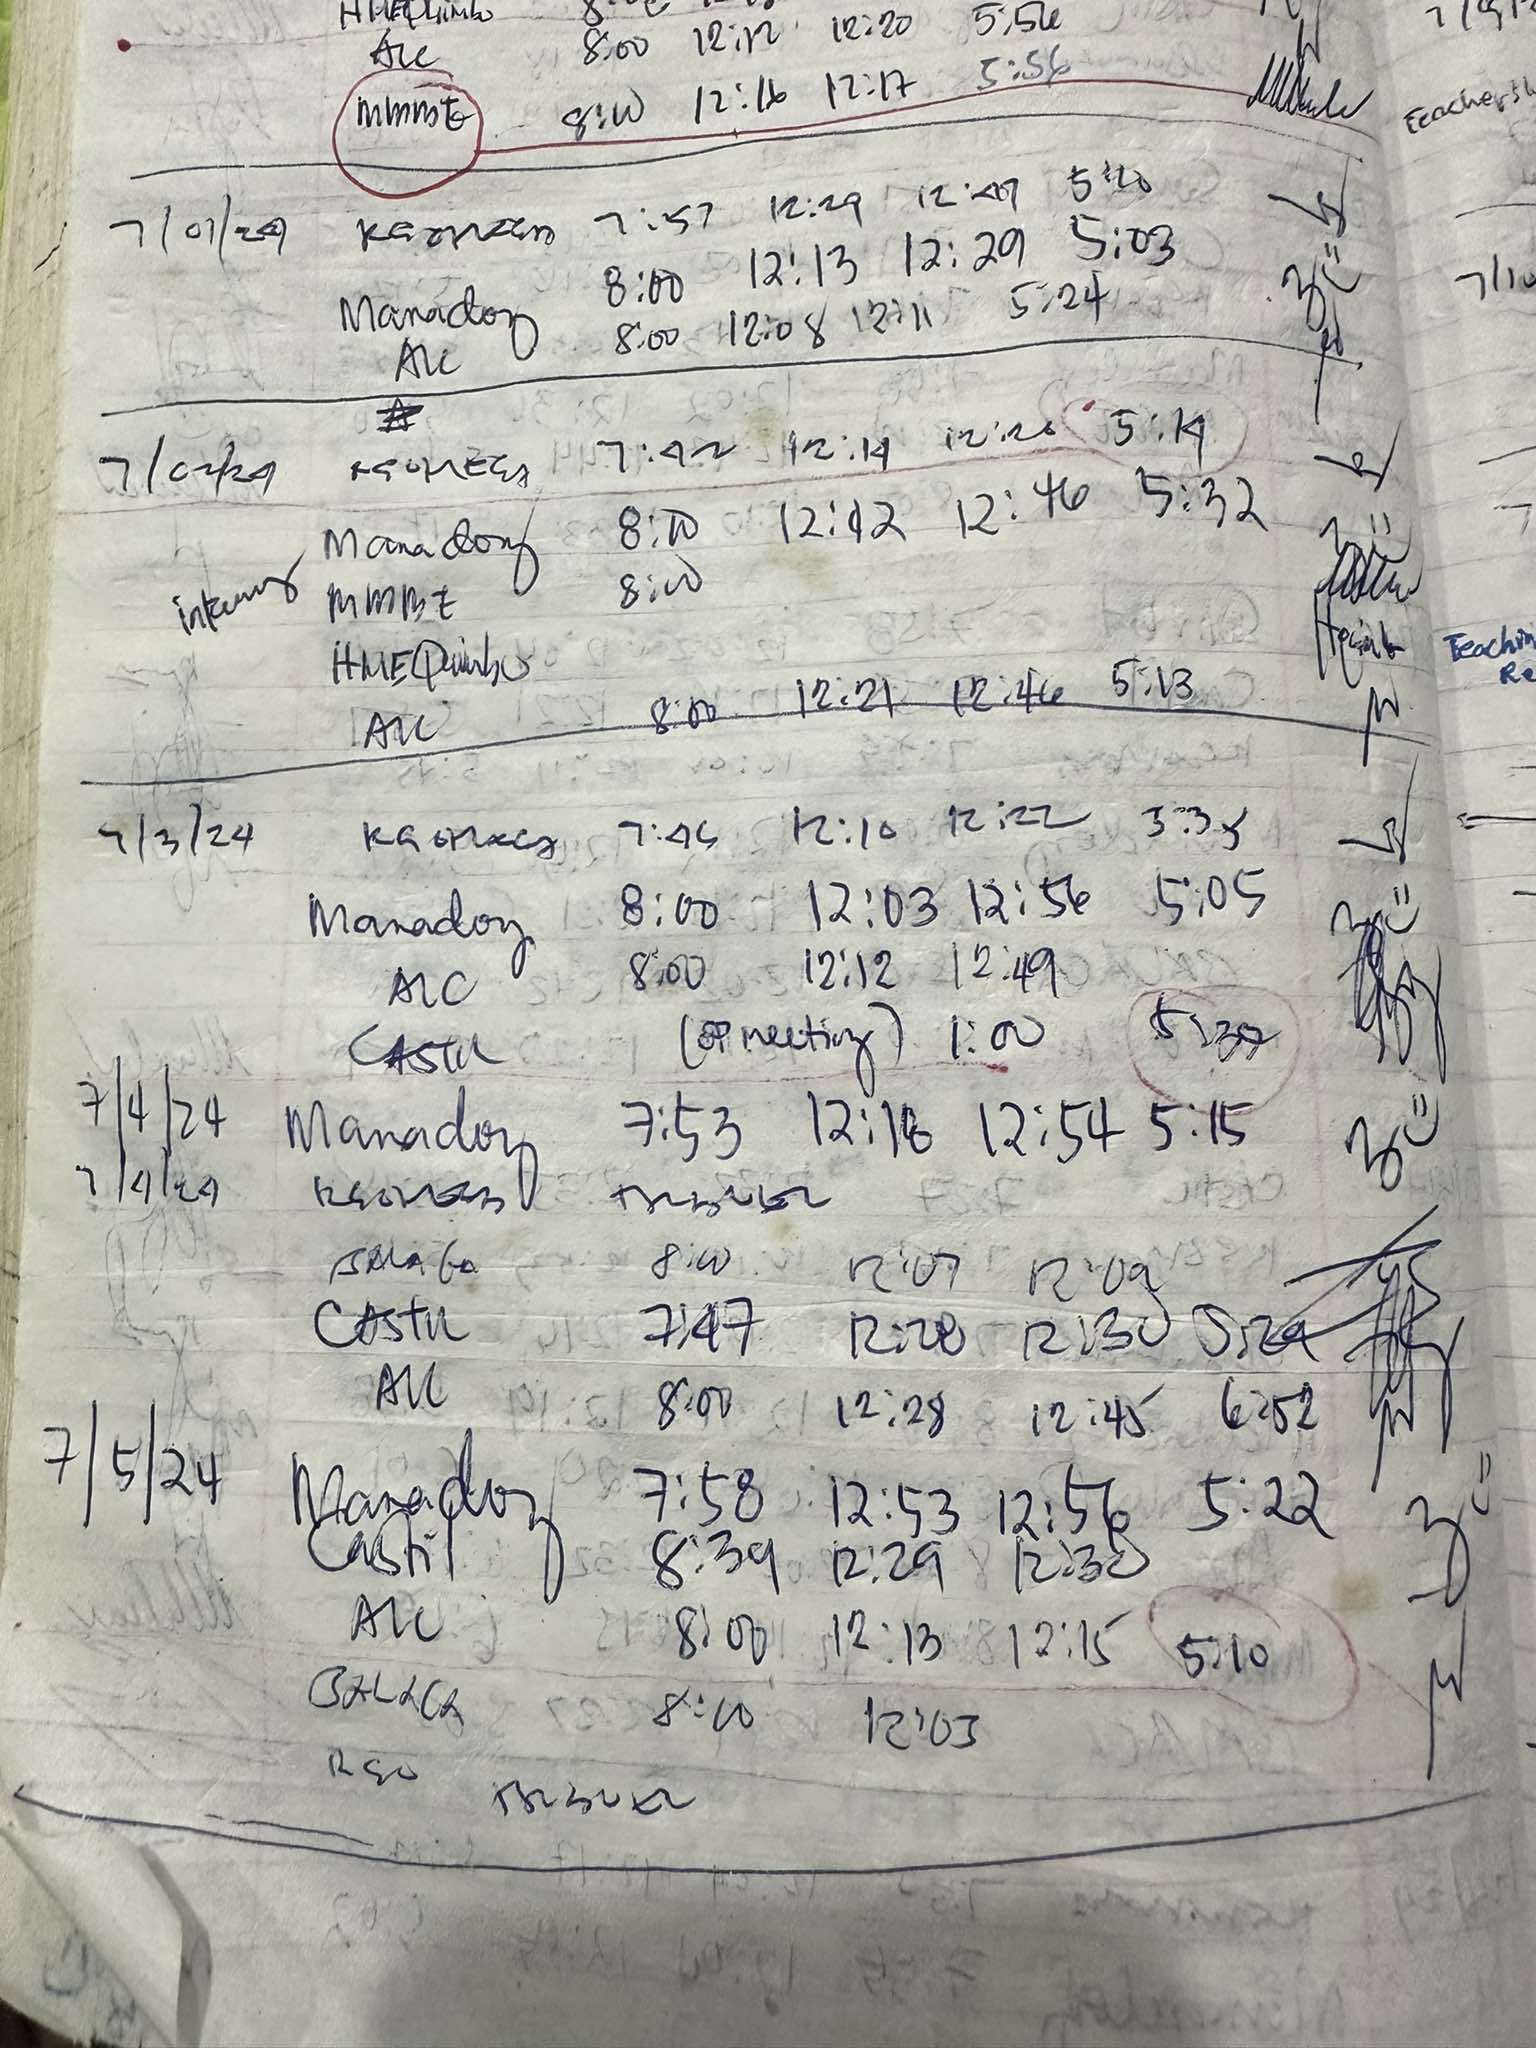 HMEQuimbo 8:00
ALC 8:00 12:12 12:20 5:56
MMBE 8:00 12:16 12:17 5:56
Teachers
7/01/24 7:57 12:29 12:49 5:20
Manadoy 8:00 12:13 12:29 5:03
ALC 8:00 12:08 12:11 5:24
7/10
7/02/24 7:42 12:14 12:20 5:14
Manadoy 8:00 12:42 12:46 5:32
MMBE 8:00
HMEQuimbo
Teachin
Re
ALC 8:00 12:21 12:46 5:13
7/3/24 7:45 12:10 12:22
Manadoy 8:00 12:03 12:56 5:05
ALC 8:00 12:12 12:49
CASTIL (OP meeting) 1:00
7/4/24 Manadoy 7:53 12:18 12:54 5:15
7/4/24
8:00 12:07 12:09
CASTIL 7:47 12:28 12:30 5:29
ALC 8:00 12:28 12:45 6:52
7/5/24 Manadoy 7:58 12:53 12:56 5:22
Castil 8:39 12:29 12:30
ALC 8:00 12:13 12:15 5:10
8:00 12:03
RGO